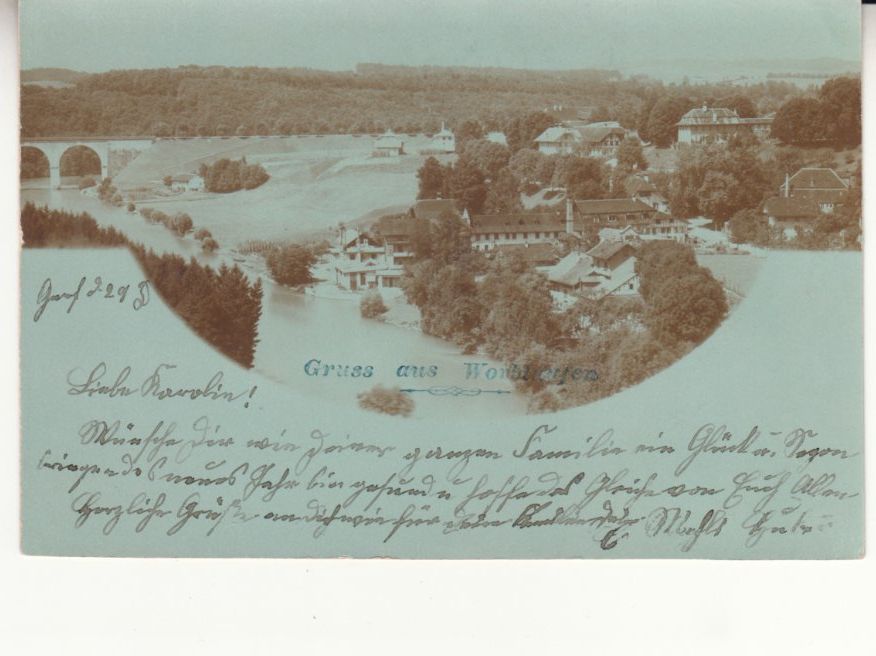 Gruss aus Worblaufen
d. 29
Liebe Karolin!
Wünsche Dir wie Deiner ganzen Familie ein Glück u. Segen
bringendes neues Jahr bin gesund u hoffe das Gleiche von Euch Allen
Herzliche Grüße an Dich wie für